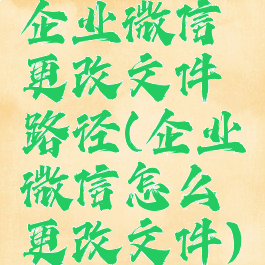 企业微信
更改文件
路径(企业
微信怎么
更改文件)